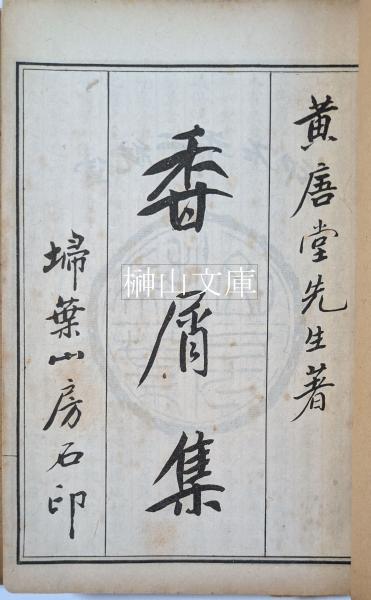 黄唐堂先生著
香屑集
掃葉山房石印
榊山文庫